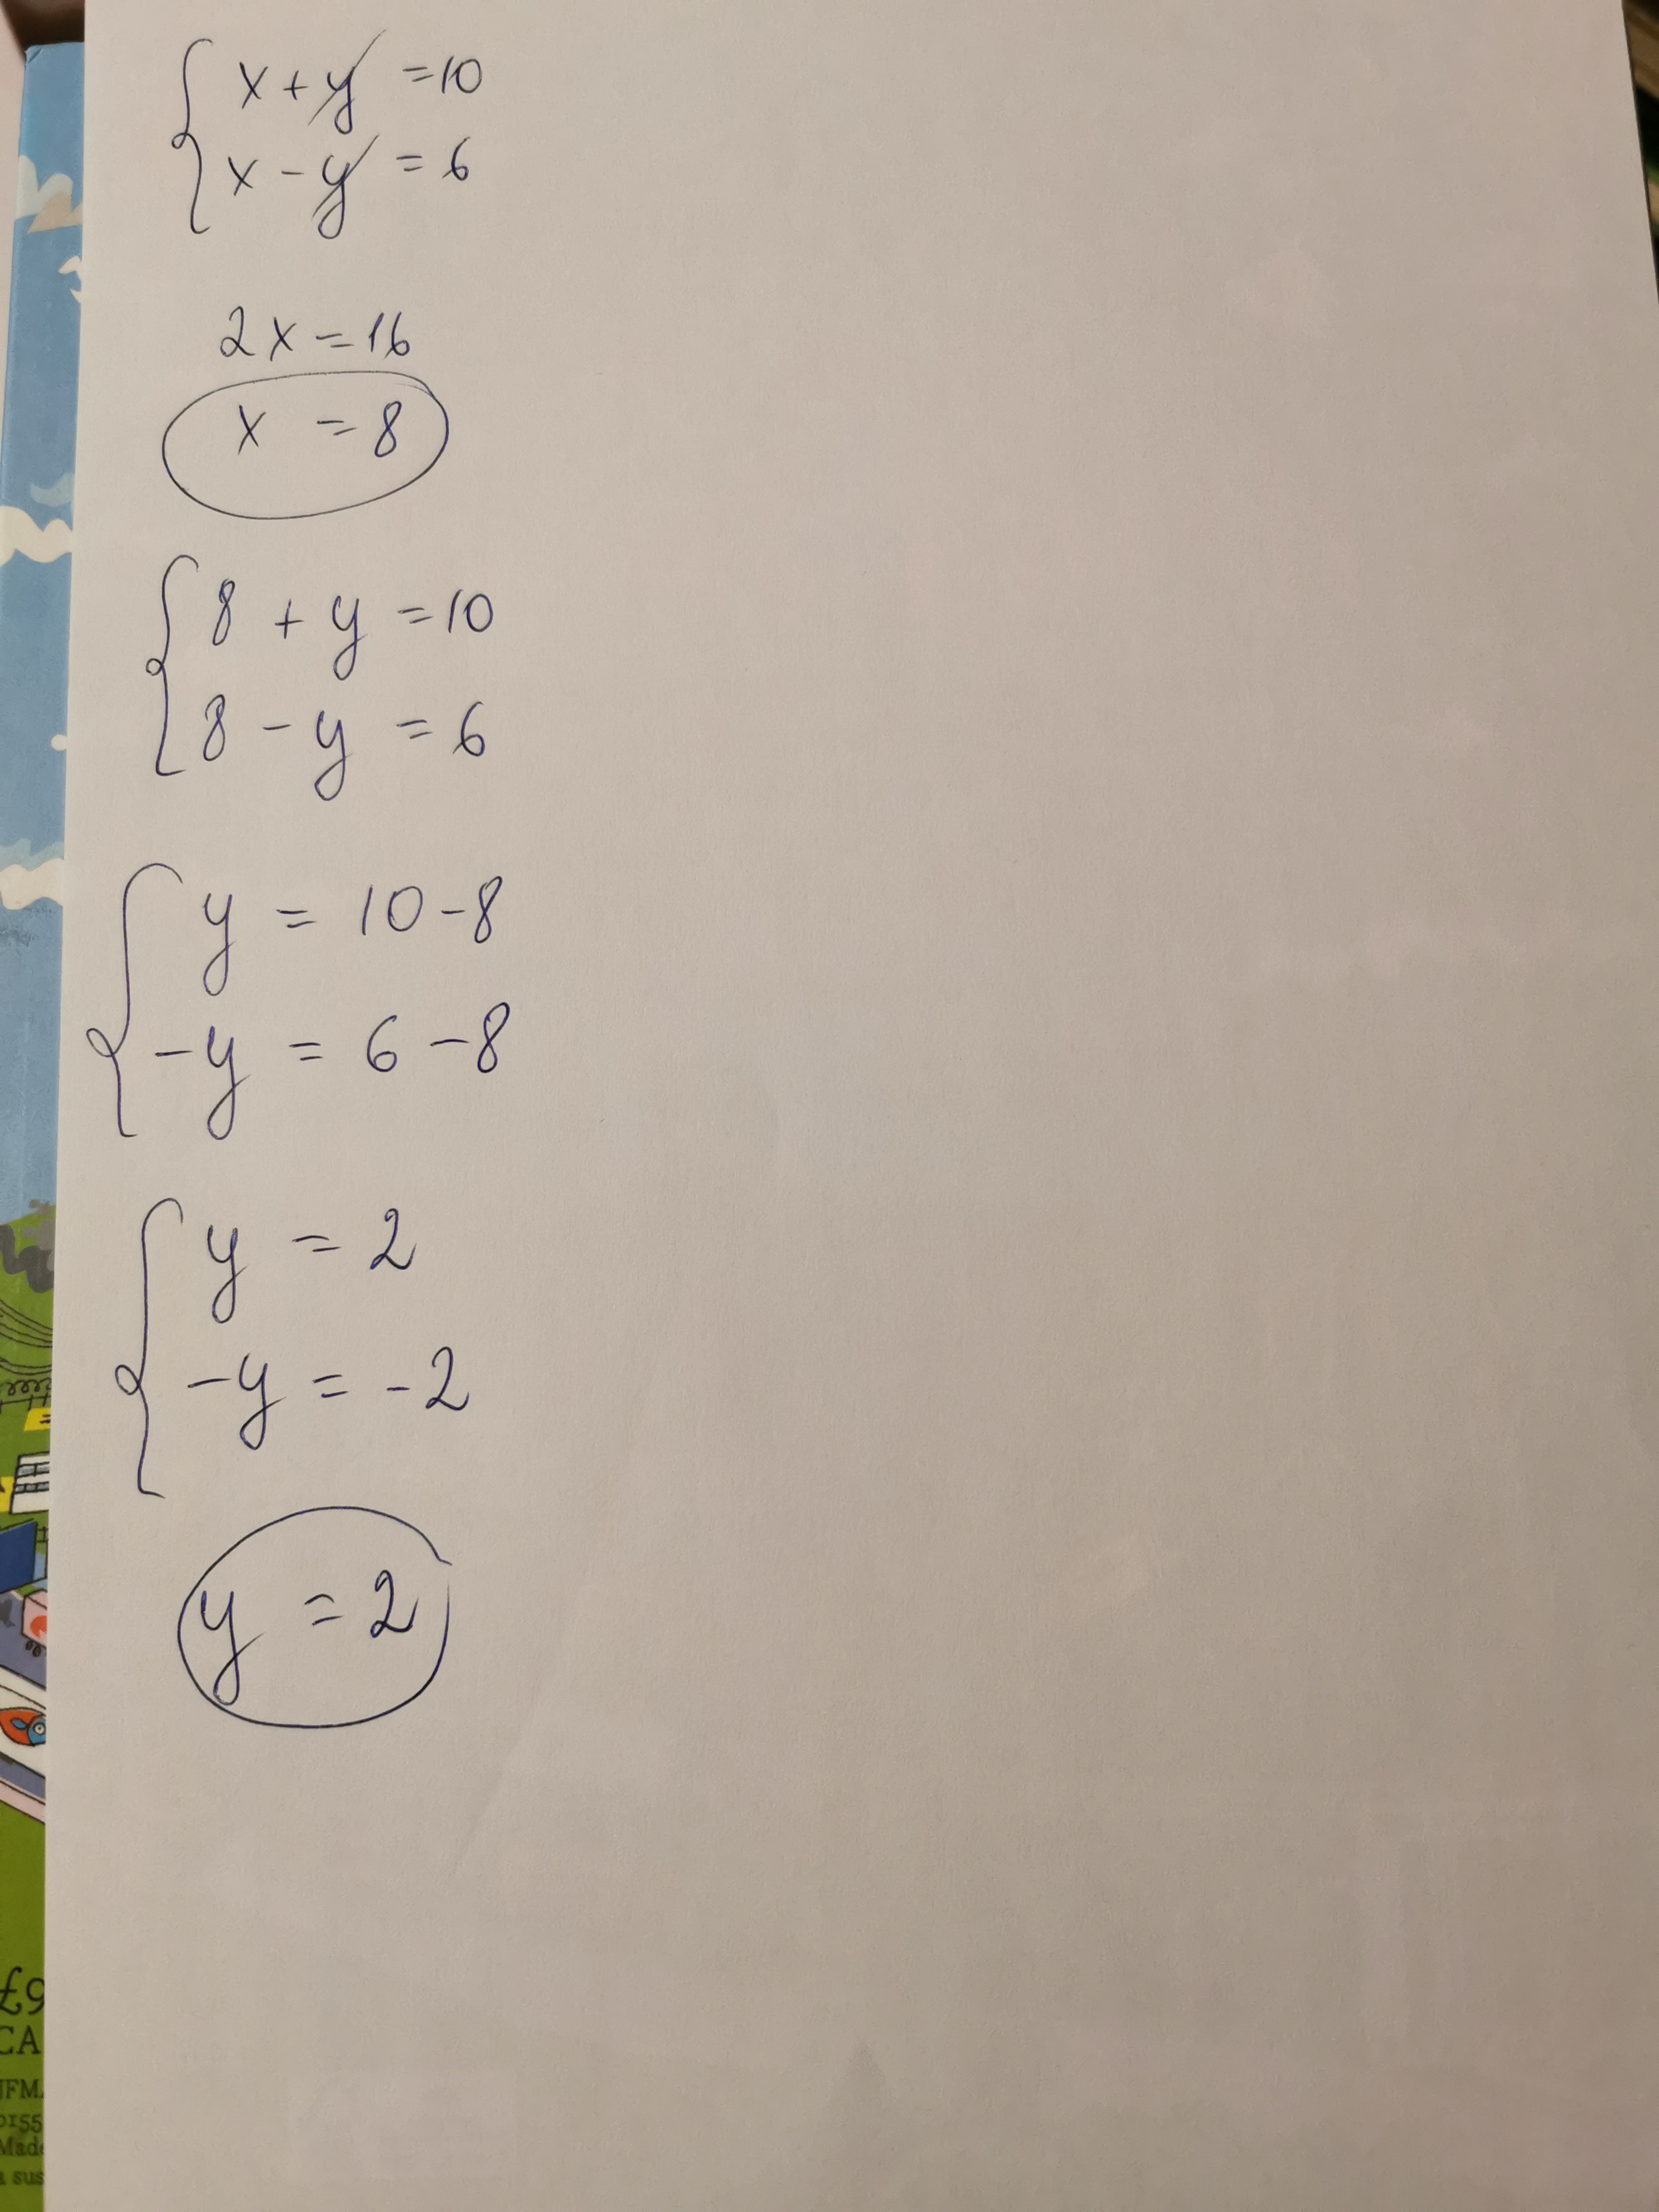 x + y = 10
x - y = 6
2x = 16
x = 8
8 + y = 10
8 - y = 6
y = 10 - 8
-y = 6 - 8
y = 2
-y = -2
y = 2
£9
CA
0155
Made